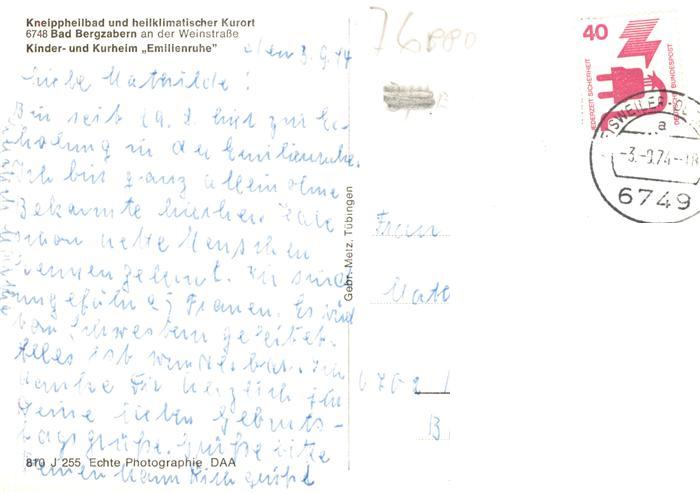 Kneippheilbad und heilklimatischer Kurort
6748 Bad Bergzabern an der Weinstraße
Kinder- und Kurheim „Emilienruhe"
den 3.9.74
Liebe Mathilde!
Bin seit 19.8. hier zur Er-
holung in der Emilienruhe.
Ich bin ganz allein ohne
Bekannte hierher. Habe
schon nette Menschen
kennengelernt. Wir sind
ungefähr 25 Frauen. Es wird
von Schwestern geleitet.
Alles ist wunderbar. Ich
danke Dir herzlich für
Deine lieben Geburts-
tagsgrüße. Grüße bitte
Deinen Mann
810 J 255 Echte Photographie DAA
Gebr. Metz, Tübingen
76880
40
JEDERZEIT SICHERHEIT
DEUTSCHE BUNDESPOST
a
-3.-9.74-18
6749
Frau
Math
6702
B